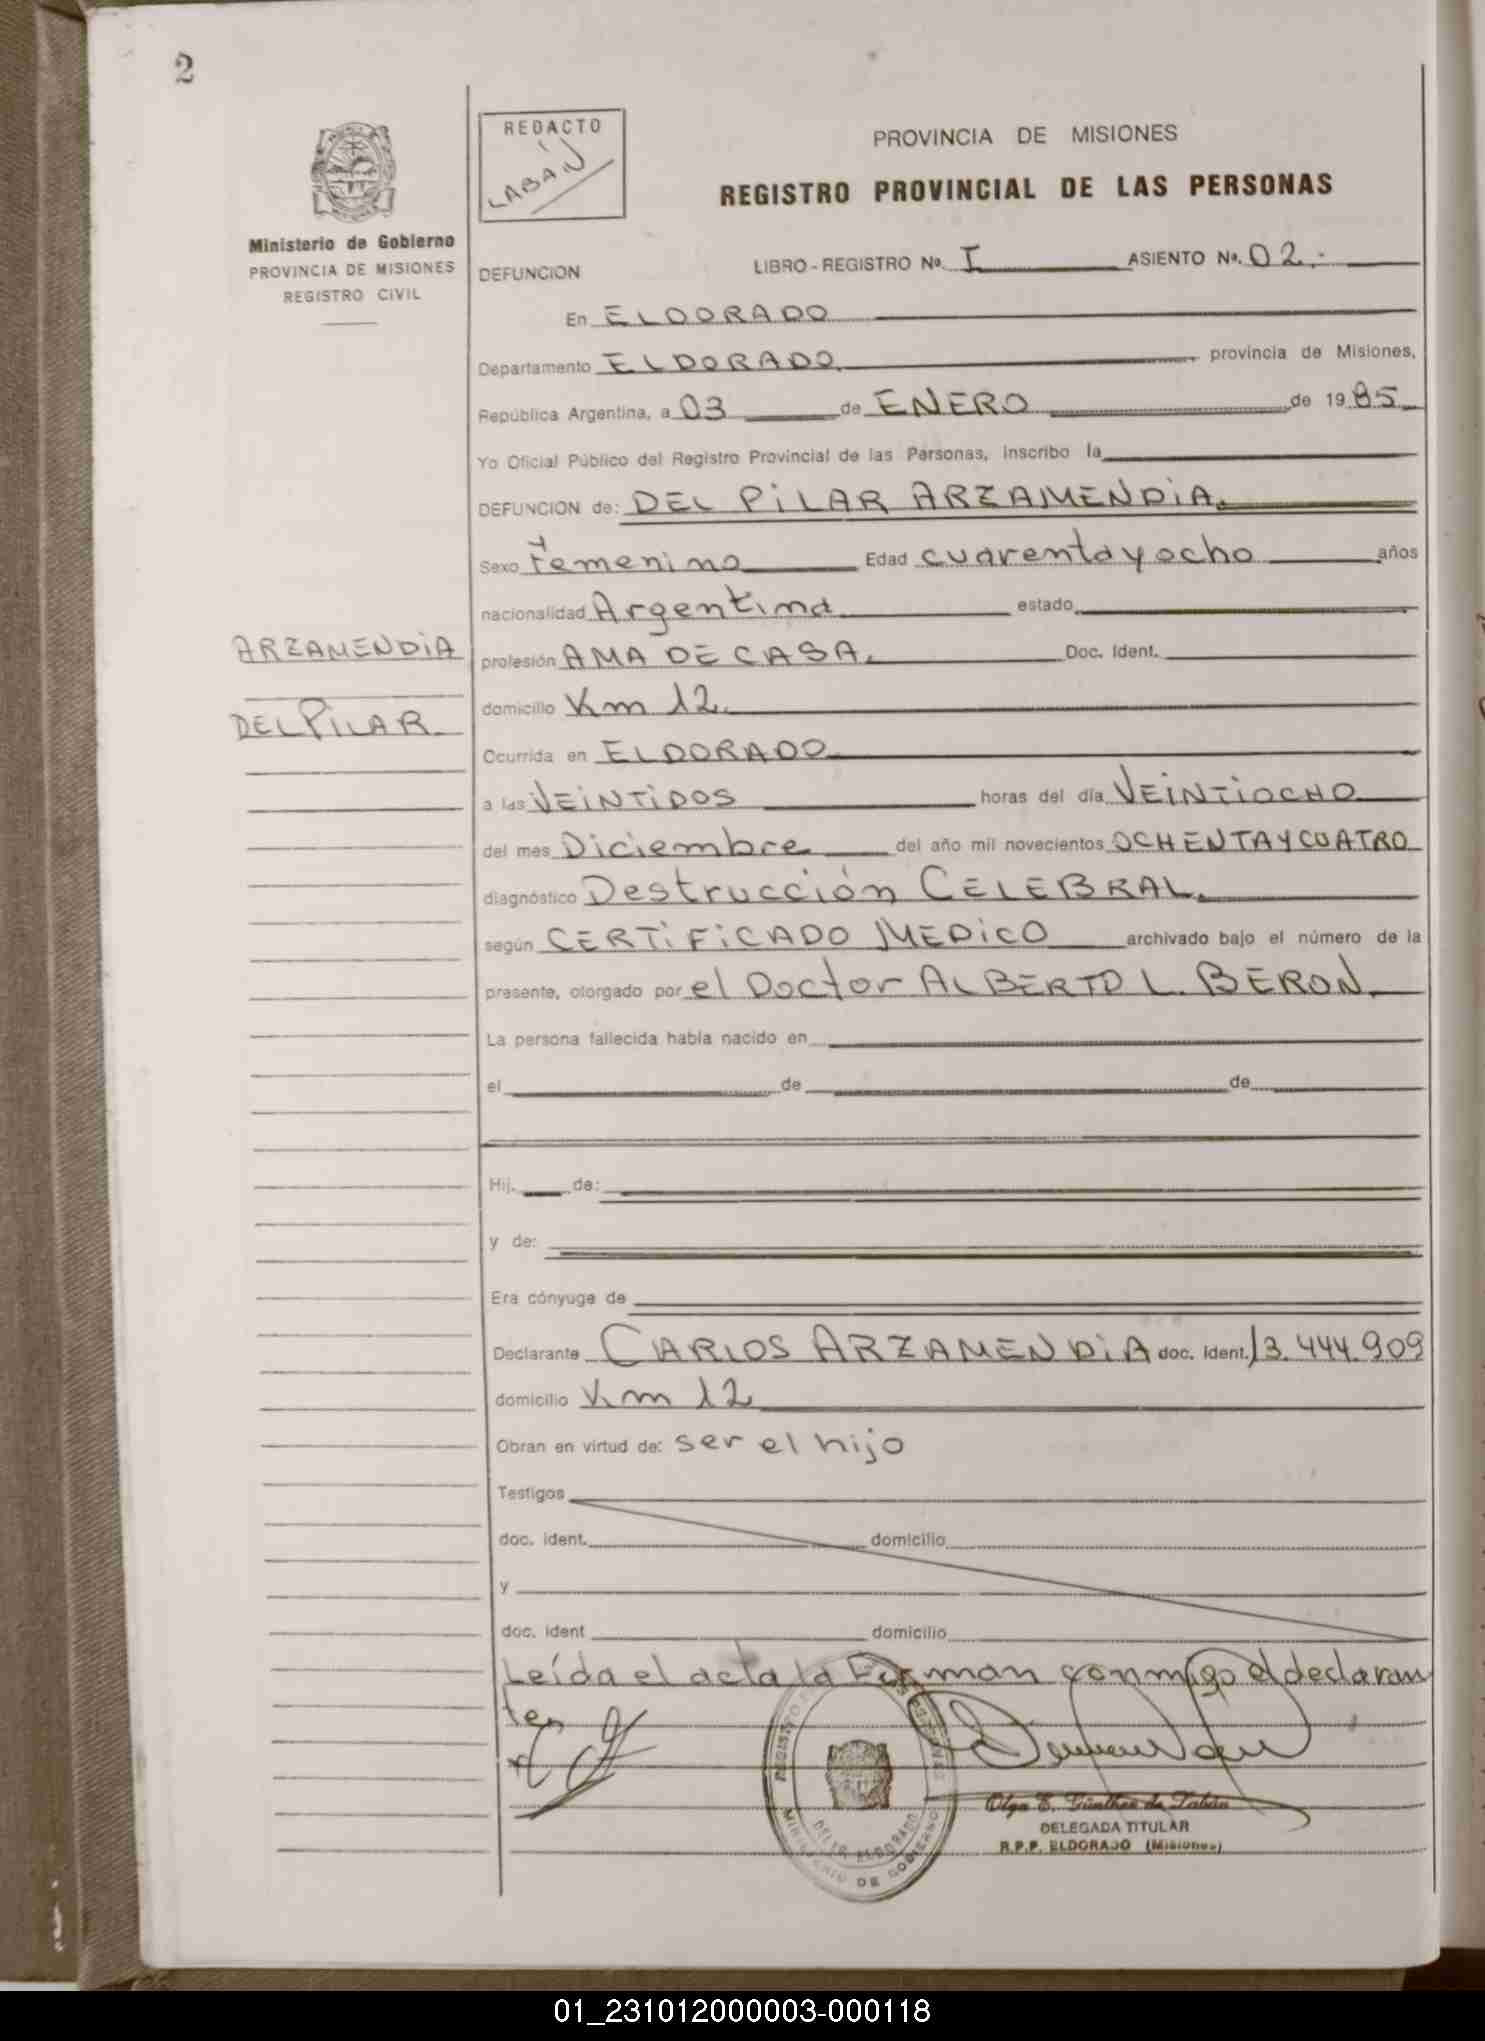 2
REDACTO
LABAN
PROVINCIA DE MISIONES
REGISTRO PROVINCIAL DE LAS PERSONAS
Ministerio de Gobierno
PROVINCIA DE MISIONES
REGISTRO CIVIL
DEFUNCION LIBRO - REGISTRO Nº. I ASIENTO Nº. 02.-
En ELDORADO
Departamento ELDORADO. provincia de Misiones,
República Argentina, a 03 de ENERO de 1985
Yo Oficial Público del Registro Provincial de las Personas, inscribo la
DEFUNCION de: DEL PILAR ARZAMENDIA.
Sexo femenino Edad cuarenta y ocho años
nacionalidad Argentina estado
ARZAMENDIA
DEL PILAR
profesión AMA DE CASA. Doc. Ident.
domicilio Km 12.
Ocurrida en ELDORADO
a las VEINTIDOS horas del día VEINTIOCHO
del mes Diciembre del año mil novecientos OCHENTA Y CUATRO
diagnóstico Destrucción CELEBRAL.
según CERTIFICADO MEDICO archivado bajo el número de la
presente, otorgado por el Doctor ALBERTO L. BERON.
La persona fallecida había nacido en
el de de
Hij. de:
y de:
Era cónyuge de
Declarante CARLOS ARZAMENDIA doc. ident. 13.444.909
domicilio Km 12
Obran en virtud de: ser el hijo
Testigos
doc. ident. domicilio
y
doc. ident domicilio
Leída el acta la Firman conmigo el declaran
te
REGISTRO PERSONAS
MINISTERIO DE GOBIERNO
ELDORADO
Olga E. Günther de Labán
DELEGADA TITULAR
R.P.P. ELDORADO (Misiones)
01_231012000003-000118